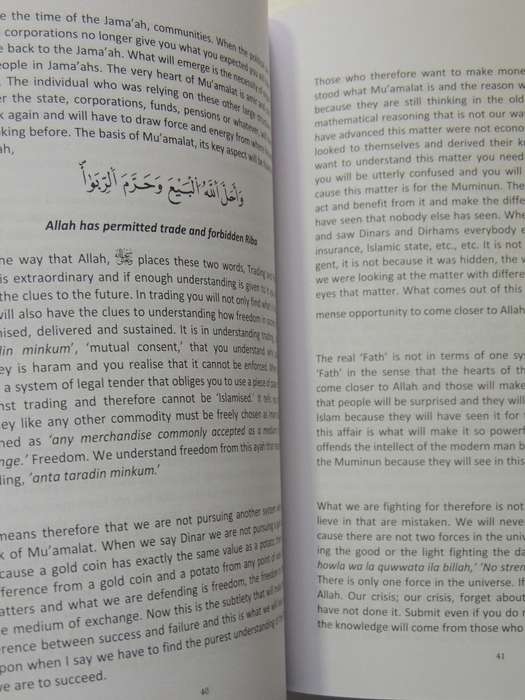 e the time of the Jama’ah, communities. When the political
corporations no longer give you what you expected you will
e back to the Jama’ah. What will emerge is the necessity of
eople in Jama’ahs. The very heart of Mu’amalat is amir and
. The individual who was relying on these other large
er the state, corporations, funds, pensions or whatever, will
k again and will have to draw force and energy from where
king before. The basis of Mu’amalat, its key aspect will be
ah,
وَأَحَلَّ ٱللَّهُ ٱلْبَيْعَ وَحَرَّمَ ٱلرِّبَوٰاْ
Allah has permitted trade and forbidden Riba
he way that Allah, ﷻ places these two words, Trading
is extraordinary and if enough understanding is given to
the clues to the future. In trading you will not only find
will also have the clues to understanding how freedom
nised, delivered and sustained. It is in understanding,
din minkum’, ‘mutual consent,’ that you understand
ey is haram and you realise that it cannot be enforced.
a system of legal tender that obliges you to use a piece of
nst trading and therefore cannot be ‘Islamised.’ It
ey like any other commodity must be freely chosen as
ned as ‘any merchandise commonly accepted as a medium
nge.’ Freedom. We understand freedom from this ayat that
ding, ‘anta taradin minkum.’
means therefore that we are not pursuing another system
k of Mu’amalat. When we say Dinar we are not pursuing a
cause a gold coin has exactly the same value as a potato,
fference from a gold coin and a potato from any point of
atters and what we are defending is freedom, the freedom
e medium of exchange. Now this is the subtlety that
erence between success and failure and this is what we
pon when I say we have to find the purest understanding of
ve are to succeed.
40
Those who therefore want to make mone
stood what Mu’amalat is and the reason w
because they are still thinking in the old
mathematical reasoning that is not our wa
have advanced this matter were not econom
looked to themselves and derived their kn
want to understand this matter you need
you will be utterly confused and you will
cause this matter is for the Muminun. The
act and benefit from it and make the diffe
have seen that nobody else has seen. Whe
and saw Dinars and Dirhams everybody e
insurance, Islamic state, etc., etc. It is not
gent, it is not because it was hidden, the v
we were looking at the matter with differe
eyes that matter. What comes out of this
mense opportunity to come closer to Allah
The real ‘Fath’ is not in terms of one sys
‘Fath’ in the sense that the hearts of th
come closer to Allah and those will make
that people will be surprised and they will
Islam because they will have seen it for
this affair is what will make it so powerf
offends the intellect of the modern man b
the Muminun because they will see in this
What we are fighting for therefore is not
lieve in that are mistaken. We will never
cause there are not two forces in the univ
ing the good or the light fighting the da
howla wa la quwwata ila billah,’ ‘No stren
There is only one force in the universe. It
Allah. Our crisis; our crisis, forget about
have not done it. Submit even if you do n
the knowledge will come from those who
41